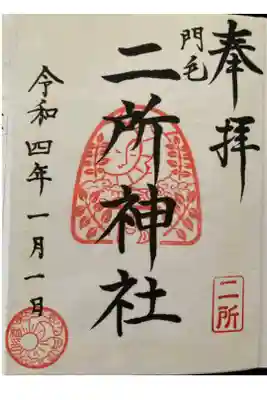 奉拝
門毛
二所神社
令和四年一月一日
二所